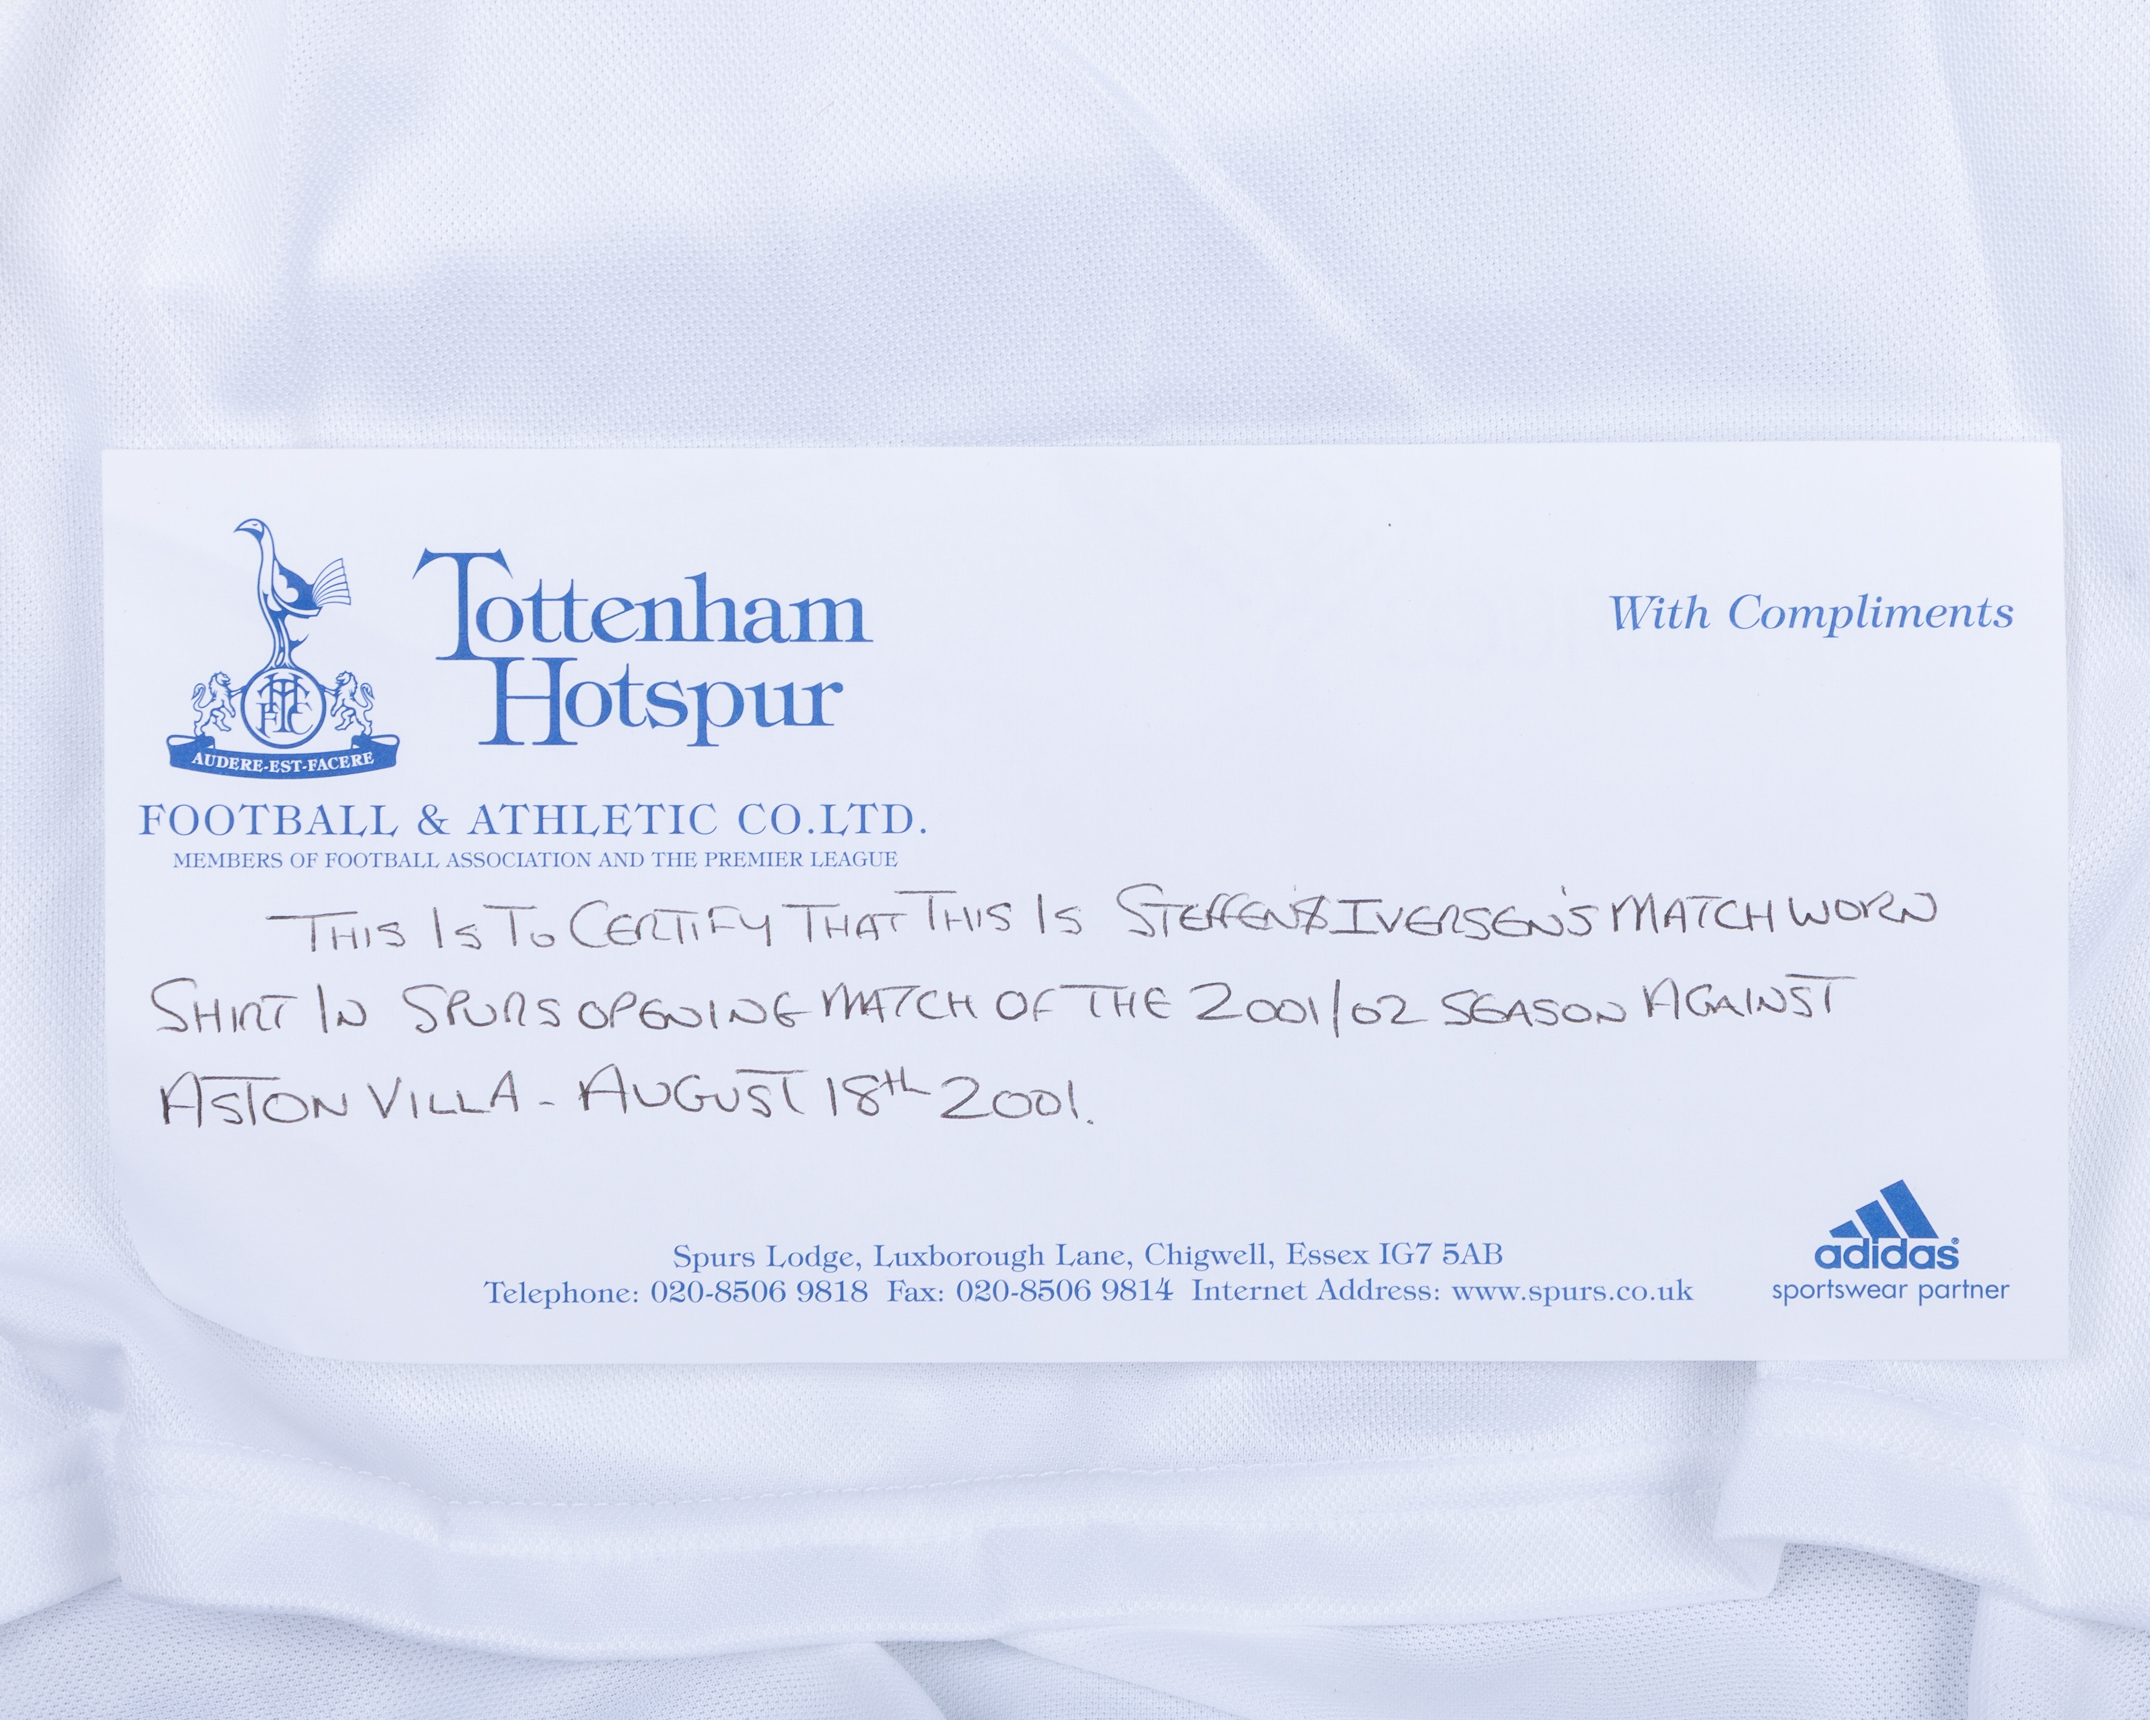 Tottenham
Hotspur
With Compliments
THFC
AUDERE-EST-FACERE
FOOTBALL & ATHLETIC CO.LTD.
MEMBERS OF FOOTBALL ASSOCIATION AND THE PREMIER LEAGUE
THIS IS TO CERTIFY THAT THIS IS STEFFEN IVERSEN'S MATCH WORN
SHIRT IN SPURS OPENING MATCH OF THE 2001/02 SEASON AGAINST
ASTON VILLA - AUGUST 18TH 2001.
Spurs Lodge, Luxborough Lane, Chigwell, Essex IG7 5AB
Telephone: 020-8506 9818 Fax: 020-8506 9814 Internet Address: www.spurs.co.uk
adidas®
sportswear partner